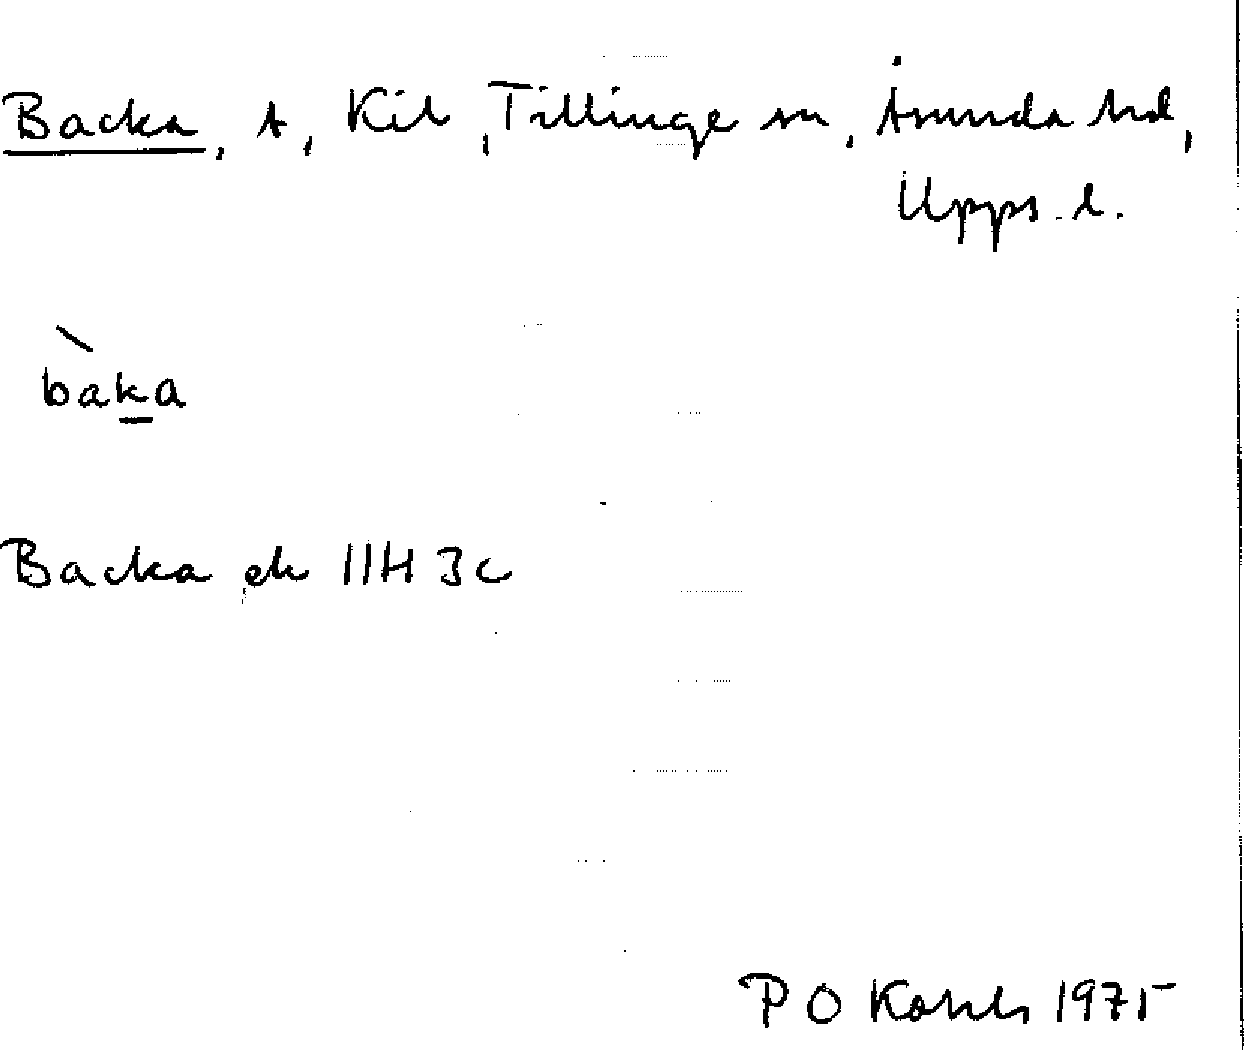 Backa, t, Kil, Tillinge sn, Åsunda hd,
Upps. l.
bàka
Backa ek 11H 3c
P O 1975